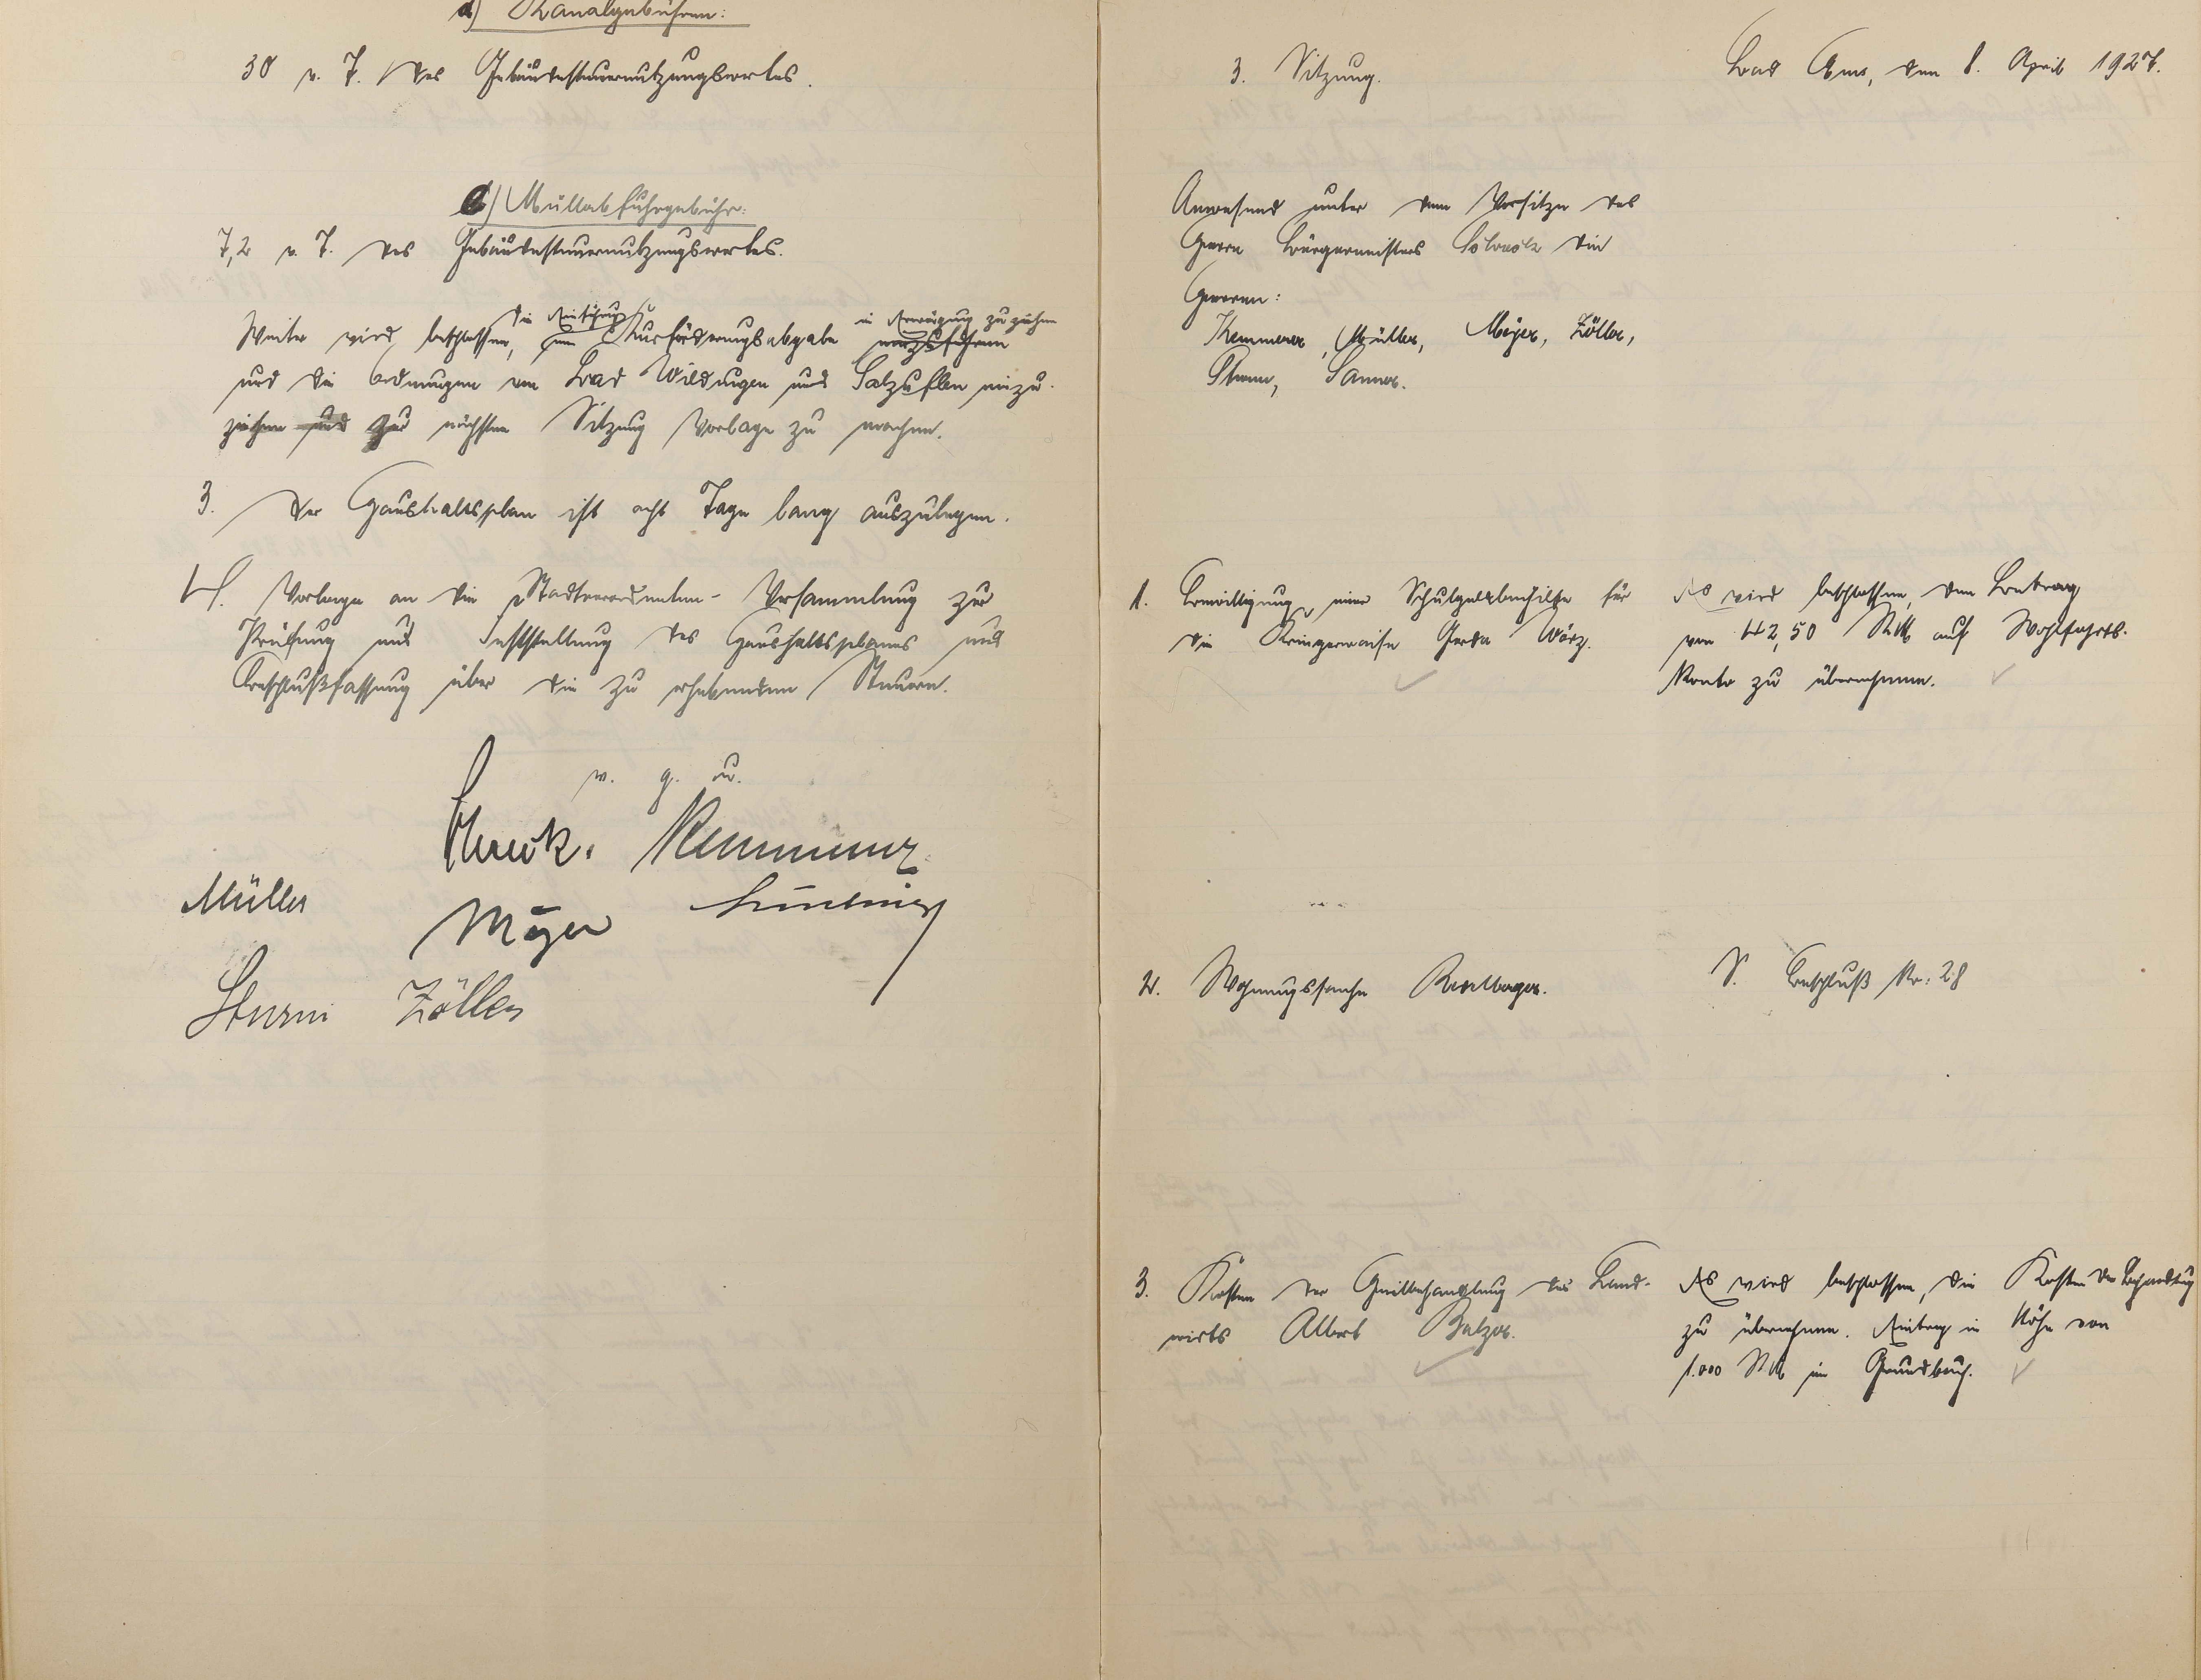 d) Kanalgebühren:
30 v. T. des Gebäudesteuernutzungswertes.
e) Müllabfuhrgebühr:
7,2 v. T. des Gebäudesteuernutzungswertes.
die Einführung in Erwägung zu ziehen
Weiter wird beschlossen, eine Kurförderungsabgabe einzuführen
und die Ordnungen von Bad Wildungen und Salzuflen einzu-
ziehen und zur nächsten Sitzung Vorlage zu machen.
3. Der Haushaltsplan ist acht Tage lang auszulegen.
4. Vorlage an die Stadtverordneten-Versammlung zur
Prüfung und Feststellung des Haushaltsplanes und
Beschlußfassung über die zu erhebenden Steuern.
v. g. u.
Kemmerer
Müller
Meyer
Sturm Zöller
3. Sitzung. Bad Ems, den 8. April 1927.
Anwesend unter dem Vorsitze des
Herrn Bürgermeisters die
Herren:
Kemmerer, Müller, Meyer, Zöller,
Sturm,
1. Bewilligung einer Schulgeldbeihilfe für
die Kriegerwaise Gerda Würz.
Es wird beschlossen, den Betrag
von 42,50 RM auf Wohlfahrts-
Konto zu übernehmen.
2. Wohnungssache
S. Beschluß Nr. 28
3. Kosten der Heilbehandlung des Land-
wirts Albert Balzer.
Es wird beschlossen, die Kosten der Behandlung
zu übernehmen. Eintrag in Höhe von
1.000 RM im Grundbuch.